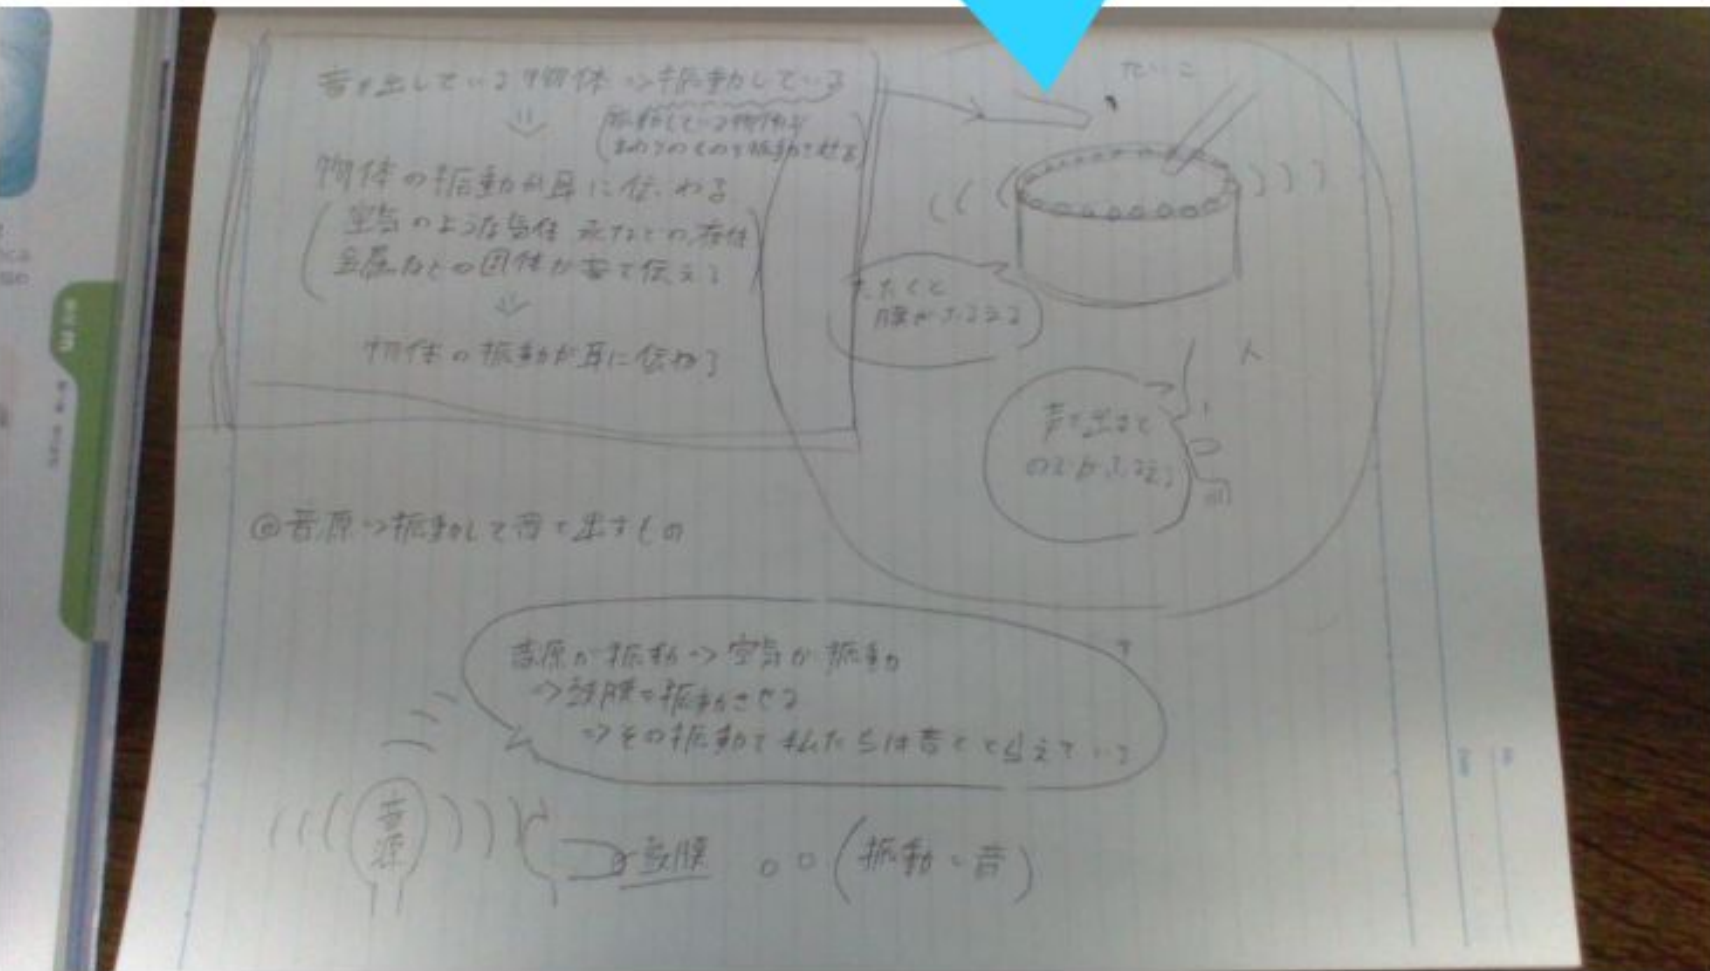 音を出している物体⇒振動している
(振動している物体が
まわりのものを振動させる)
物体の振動が耳に伝わる
(空気のような気体 水などの液体
金属などの固体が音を伝える)
物体の振動が耳に伝わる
たいこ
たたくと
膜がふるえる
人
声を出すと
のどがふるえる
◎音源⇒振動して音を出すもの
音源が振動⇒空気が振動
⇒鼓膜を振動させる
⇒その振動で私たちは音をとらえている
音源
鼓膜 (振動=音)